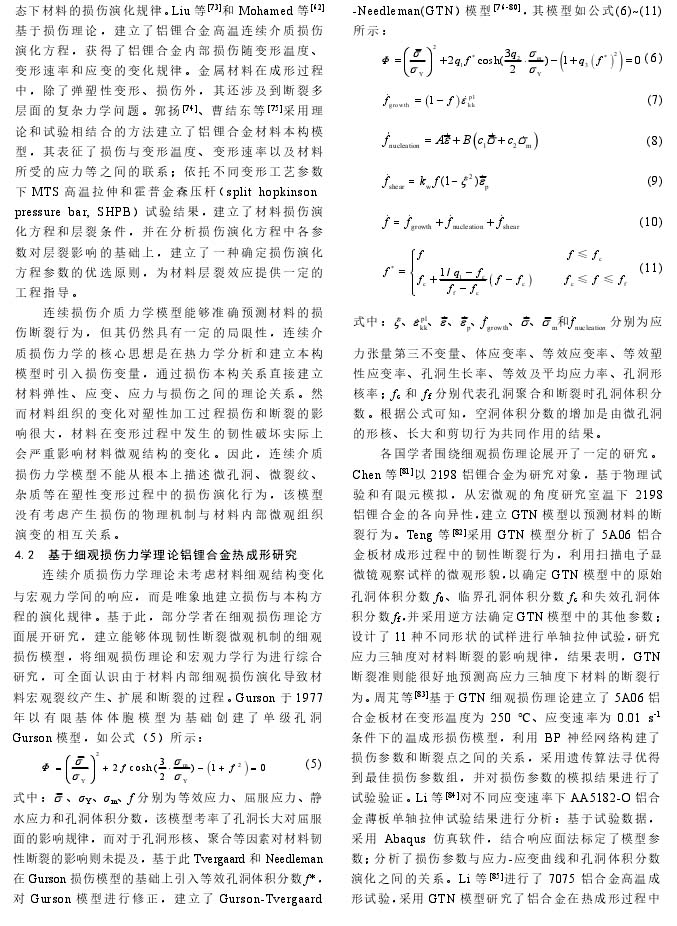 态下材料的损伤演化规律。Liu 等[73]和 Mohamed 等[62]
基于损伤理论，建立了铝锂合金高温连续介质损伤
演化方程，获得了铝锂合金内部损伤随变形温度、
变形速率和应变的变化规律。金属材料在成形过程
中，除了弹塑性变形、损伤外，其还涉及到断裂多
层面的复杂力学问题。郭扬[74]、曹结东等[75]采用理
论和试验相结合的方法建立了铝锂合金材料本构模
型，其表征了损伤与变形温度、变形速率以及材料
所受的应力等之间的联系；依托不同变形工艺参数
下 MTS 高温拉伸和霍普金森压杆(split hopkinson
pressure bar, SHPB) 试验结果，建立了材料损伤演
化方程和层裂条件，并在分析损伤演化方程中各参
数对层裂影响的基础上，建立了一种确定损伤演化
方程参数的优选原则，为材料层裂效应提供一定的
工程指导。
连续损伤介质力学模型能够准确预测材料的损
伤断裂行为，但其仍然具有一定的局限性，连续介
质损伤力学的核心思想是在热力学分析和建立本构
模型时引入损伤变量，通过损伤本构关系直接建立
材料弹性、应变、应力与损伤之间的理论关系。然
而材料组织的变化对塑性加工过程损伤和断裂的影
响很大，材料在变形过程中发生的韧性破坏实际上
会严重影响材料微观结构的变化。因此，连续介质
损伤力学模型不能从根本上描述微孔洞、微裂纹、
杂质等在塑性变形过程中的损伤演化行为，该模型
没有考虑产生损伤的物理机制与材料内部微观组织
演变的相互关系。
4. 2 基于细观损伤力学理论铝锂合金热成形研究
连续介质损伤力学理论未考虑材料细观结构变化
与宏观力学间的响应，而是唯象地建立损伤与本构方
程的演化规律。基于此，部分学者在细观损伤理论方
面展开研究，建立能够体现韧性断裂微观机制的细观
损伤模型，将细观损伤理论和宏观力学行为进行综合
研究，可全面认识由于材料内部细观损伤演化导致材
料宏观裂纹产生、扩展和断裂的过程。Gurson 于 1977
年以有限基体体胞模型为基础创建了单级孔洞
Gurson 模型，如公式（5）所示：
Φ = (σ̅/σY)² + 2f cosh(3/2 · σm/σY) − (1 + f²) = 0 (5)
式中：σ̅、σY、σm、f 分别为等效应力、屈服应力、静
水应力和孔洞体积分数，该模型考率了孔洞长大对屈服
面的影响规律，而对于孔洞形核、聚合等因素对材料韧
性断裂的影响则未提及，基于此 Tvergaard 和 Needleman
在 Gurson 损伤模型的基础上引入等效孔洞体积分数 f*，
对 Gurson 模型进行修正，建立了 Gurson-Tvergaard
-Needleman(GTN) 模型[76-80]，其模型如公式(6)~(11)
所示：
Φ = (σ̅/σY)² + 2q₁f* cosh(3q₂/2 · σm/σY) − (1 + q₃(f*)²) = 0 (6)
ḟgrowth = (1 − f) ε̇kk^pl (7)
ḟnucleation = Aε̅̇ + B(c₁σ̅̇ + c₂σ̇m) (8)
ḟshear = kw f(1 − ξ²)ε̅̇p (9)
ḟ = ḟgrowth + ḟnucleation + ḟshear (10)
f* = { f, f ≤ fc; fc + (1/q₁ − fc)/(ff − fc) (f − fc), fc ≤ f ≤ ff (11)
式中：ξ、ε̇kk^pl、ε̅̇、ε̅̇p、ḟgrowth、σ̅̇、σ̅̇m和ḟnucleation 分别为应
力张量第三不变量、体应变率、等效应变率、等效塑
性应变率、孔洞生长率、等效及平均应力率、孔洞形
核率；fc 和 ff 分别代表孔洞聚合和断裂时孔洞体积分
数。根据公式可知，空洞体积分数的增加是由微孔洞
的形核、长大和剪切行为共同作用的结果。
各国学者围绕细观损伤理论展开了一定的研究。
Chen 等[81]以 2198 铝锂合金为研究对象，基于物理试
验和有限元模拟，从宏微观的角度研究室温下 2198
铝锂合金的各向异性，建立 GTN 模型以预测材料的断
裂行为。Teng 等[82]采用 GTN 模型分析了 5A06 铝合
金板材成形过程中的韧性断裂行为，利用扫描电子显
微镜观察试样的微观形貌，以确定 GTN 模型中的原始
孔洞体积分数 f0、临界孔洞体积分数 fc 和失效孔洞体
积分数 ff，并采用逆方法确定GTN 模型中的其他参数；
设计了 11 种不同形状的试样进行单轴拉伸试验，研究
应力三轴度对材料断裂的影响规律，结果表明，GTN
断裂准则能很好地预测高应力三轴度下材料的断裂行
为。周芃等[83]基于 GTN 细观损伤理论建立了 5A06 铝
合金板材在变形温度为 250 ℃、应变速率为 0.01 s⁻¹
条件下的温成形损伤模型，利用 BP 神经网络构建了
损伤参数和断裂点之间的关系，采用遗传算法寻优得
到最佳损伤参数组，并对损伤参数的模拟结果进行了
试验验证。Li 等[84]对不同应变速率下 AA5182-O 铝合
金薄板单轴拉伸试验结果进行分析：基于试验数据，
采用 Abaqus 仿真软件，结合响应面法标定了模型参
数；分析了损伤参数与应力-应变曲线和孔洞体积分数
演化之间的关系。Li 等[85]进行了 7075 铝合金高温成
形试验，采用 GTN 模型研究了铝合金在热成形过程中